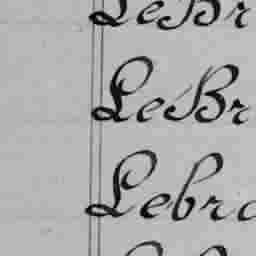 LeBr
LeBr
Lebro